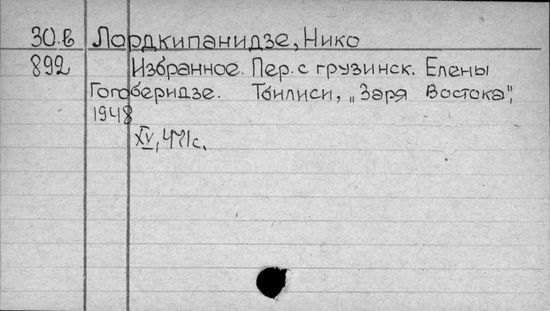 30.в Лордкипанидзе, Нико
892 Избранное. Пер. с грузинск. Елены
Гогоберидзе. Тбилиси, „Заря Востока",
1948
XV, 471с.